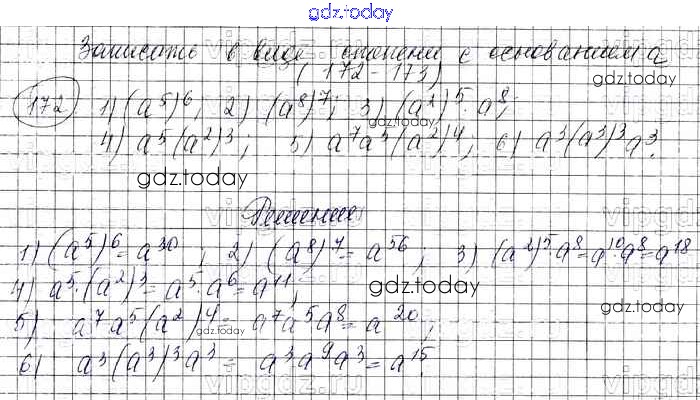 gdz.today
Записать в виде степени с основанием a
(172-173)
gdz.today
172 1) (a⁵)⁶, 2) (a⁸)⁷; 3) (a²)⁵·a⁸;
gdz.today
4) a⁵(a²)³; 5) a⁷a⁵(a²)⁴, 6) a³(a³)³a³.
gdz.today
Решение
1) (a⁵)⁶=a³⁰, 2) (a⁸)⁷=a⁵⁶; 3) (a²)⁵·a⁸=a¹⁰·a⁸=a¹⁸
4) a⁵·(a²)³=a⁵·a⁶=a¹¹;
gdz.today
gdz.today
5) a⁷a⁵(a²)⁴=a⁷a⁵a⁸=a²⁰;
gdz.today
6) a³(a³)³a³=a³a⁹a³=a¹⁵
vipgdz.ru